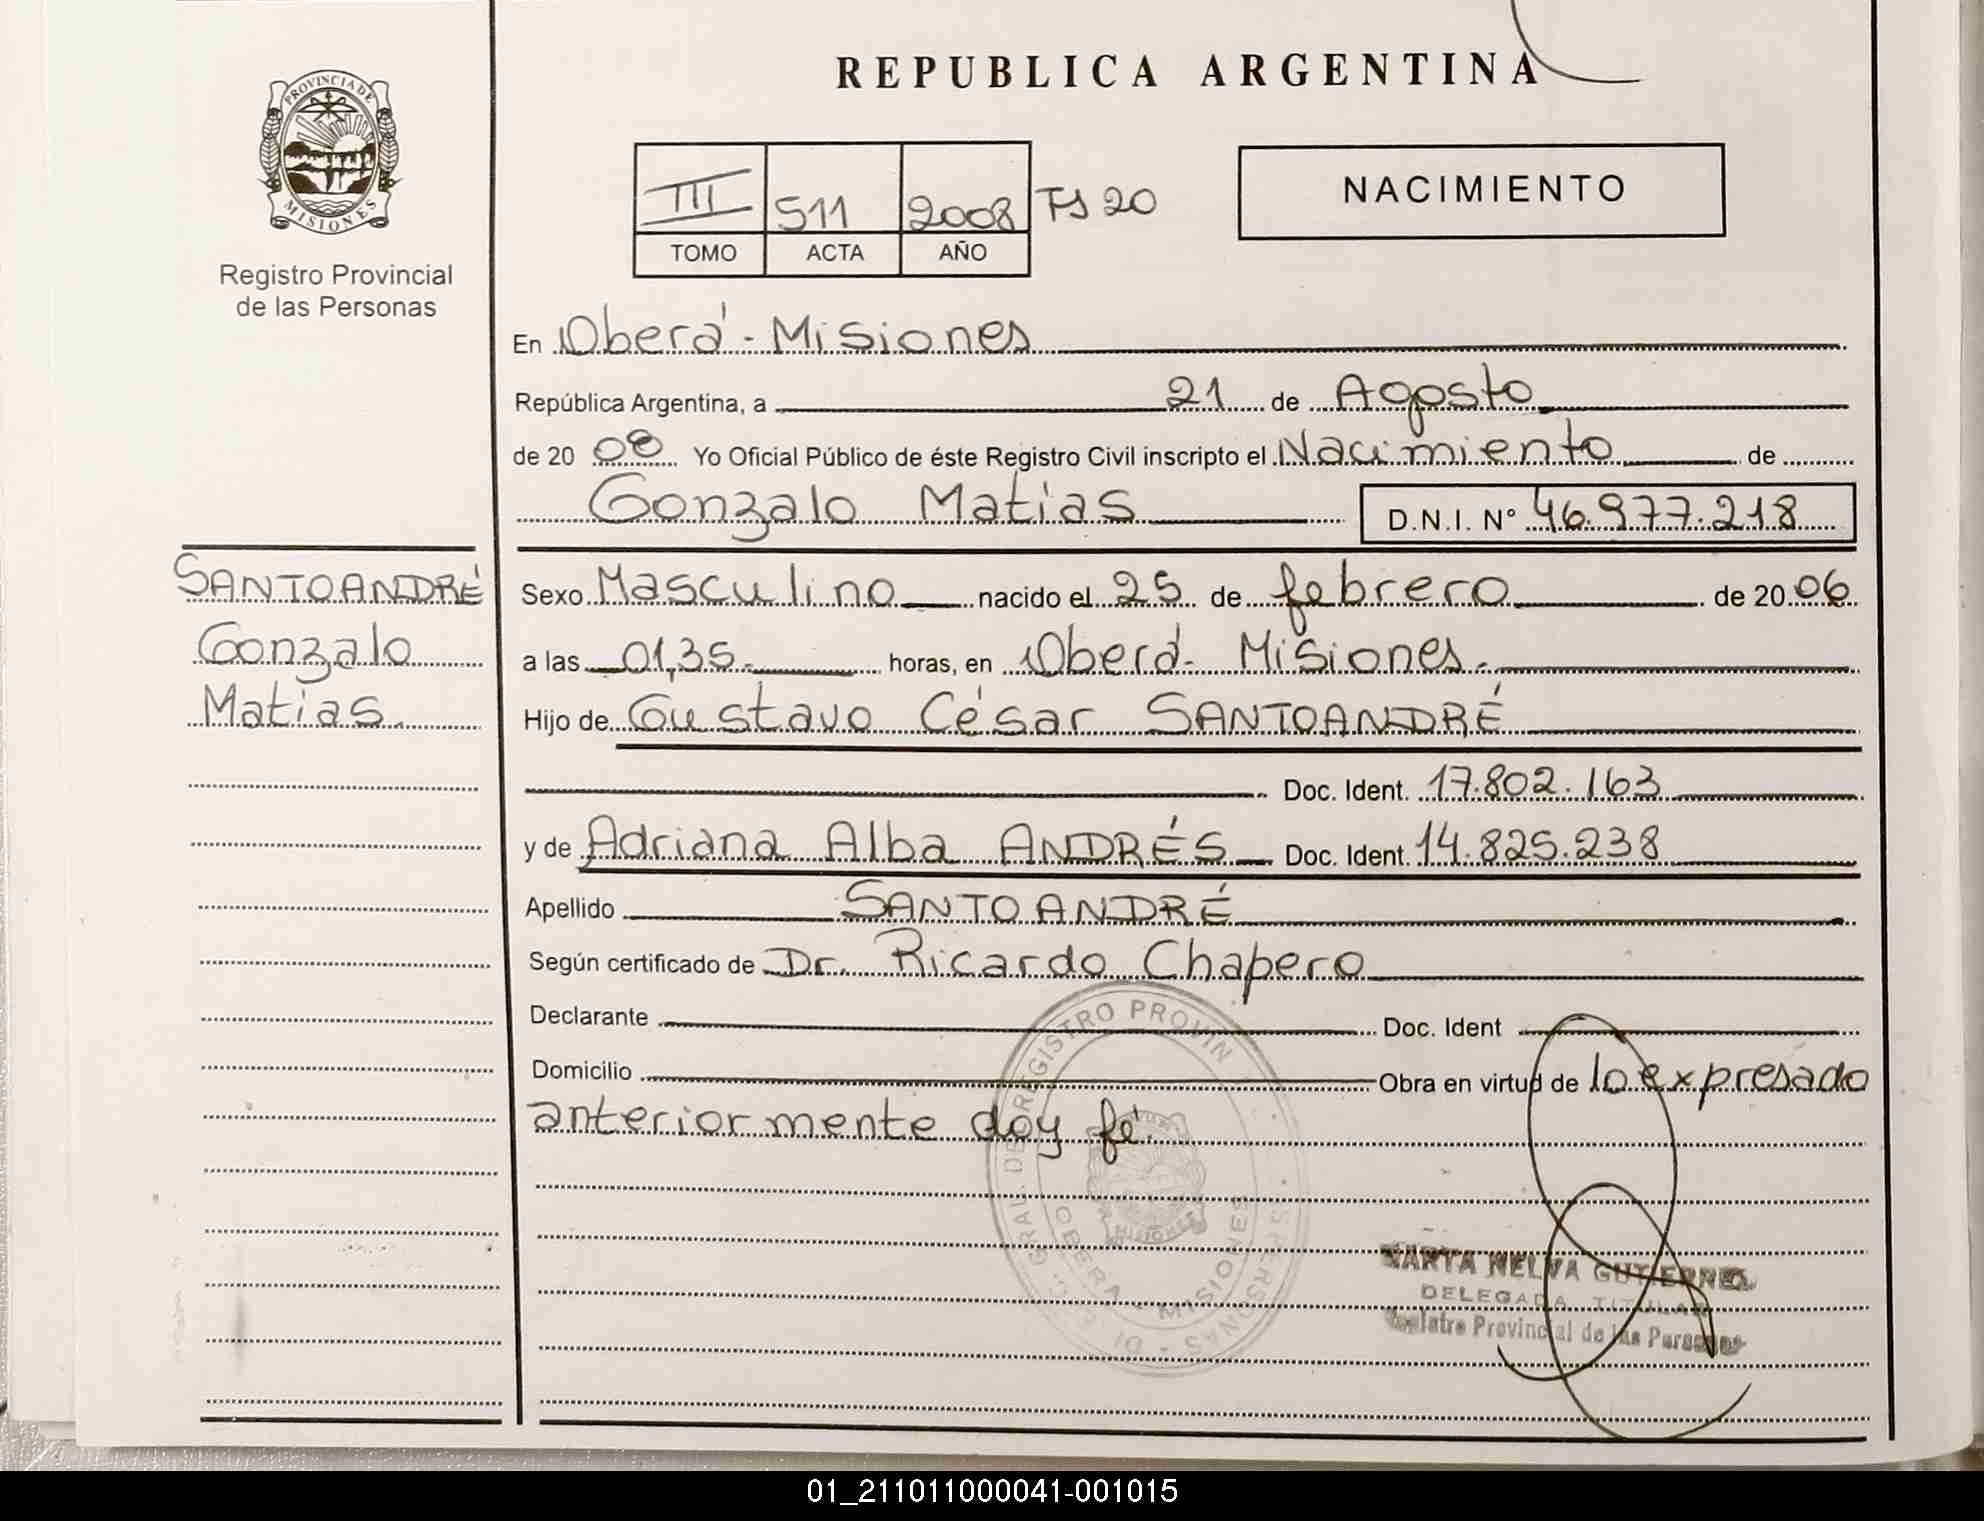 REPUBLICA ARGENTINA
PROVINCIA DE
MISIONES
Registro Provincial
de las Personas
III 511 2008 FS 20
TOMO ACTA AÑO
NACIMIENTO
En Oberá - Misiones
República Argentina, a 21 de Agosto
de 20 08 Yo Oficial Público de éste Registro Civil inscripto el Nacimiento de
Gonzalo Matias D.N.I. N° 46.977.218
SANTOANDRÉ
Gonzalo
Matias.
Sexo Masculino nacido el 25 de febrero de 20 06
a las 01,35 horas, en Oberá - Misiones.
Hijo de Gustavo César SANTOANDRÉ
Doc. Ident. 17.802.163
y de Adriana Alba ANDRÉS Doc. Ident. 14.825.238
Apellido SANTOANDRÉ
Según certificado de Dr. Ricardo Chapero
Declarante Doc. Ident
Domicilio Obra en virtud de lo expresado
anteriormente doy fé.
REGISTRO PROVIN
OBERA - MISIONES
MISIONES
NELVA
DELEGADA TITULAR
Provincial de las
01_211011000041-001015